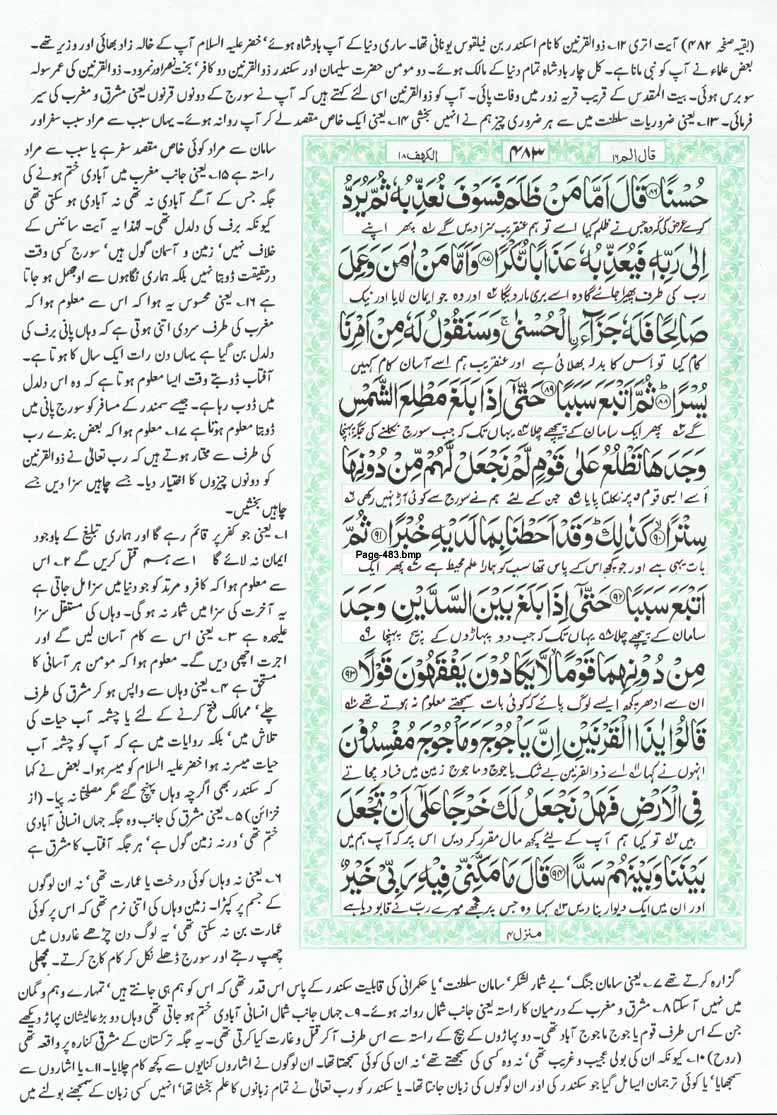 (بقیہ صفحہ ۴۸۲) آیت اتری ۱۲؎ ذوالقرنین کا نام اسکندر بن فیلقوس یونانی تھا۔ ساری دنیا کے آپ بادشاہ ہوئے' خضر علیہ السلام آپ کے خالہ زاد بھائی اور وزیر تھے۔
بعض علماء نے آپ کو نبی مانا ہے۔ کل چار بادشاہ تمام دنیا کے مالک ہوئے۔ دو مومن حضرت سلیمان اور سکندر ذوالقرنین دو کافر' بخت نصر اور نمرود۔ ذوالقرنین کی عمر سولہ
سو برس ہوئی۔ بیت المقدس کے قریب قریہ زور میں وفات پائی۔ آپ کو ذوالقرنین اسی لئے کہتے ہیں کہ آپ نے سورج کے دونوں قرنوں یعنی مشرق و مغرب کی سیر
فرمائی۔ ۱۳؎ یعنی ضروریات سلطنت میں سے ہر ضروری چیز ہم نے انہیں بخشی ۱۴؎ یعنی ایک خاص مقصد لے کر آپ روانہ ہوئے۔ یہاں سبب سے مراد سبب سفر اور
سامان سے مراد کوئی خاص مقصد سفر ہے یا سبب سے مراد
راستہ ہے ۱۵؎ یعنی جانب مغرب میں آبادی ختم ہونے کی
جگہ جس کے آگے آبادی نہ تھی نہ آبادی ہو سکتی تھی
کیونکہ برف کی دلدل تھی۔ لہٰذا یہ آیت سائنس کے
خلاف نہیں' زمین و آسمان گول ہیں' سورج کسی وقت
درحقیقت ڈوبتا نہیں بلکہ ہماری نگاہوں سے اوجھل ہو جاتا
ہے ۱۶؎ یعنی محسوس یہ ہوا کہ اس سے معلوم ہوا کہ
مغرب کی طرف سردی اتنی ہوتی ہے کہ وہاں پانی برف کی
دلدل بن گیا ہے یہاں دن رات ایک سال کا ہوتا ہے۔
آفتاب ڈوبتے وقت ایسا معلوم ہوتا ہے کہ وہ اس دلدل
میں ڈوب رہا ہے۔ جیسے سمندر کے مسافر کو سورج پانی میں
ڈوبتا معلوم ہوتا ہے ۱۷؎ معلوم ہوا کہ بعض بندے رب
کی طرف سے مختار ہوتے ہیں کہ رب تعالیٰ نے ذوالقرنین
کو دونوں چیزوں کا اختیار دیا۔ جسے چاہیں سزا دیں جسے
چاہیں بخشیں۔
۱؎ یعنی جو کفر پر قائم رہے گا اور ہماری تبلیغ کے باوجود
ایمان نہ لائے گا اسے ہم قتل کریں گے ۲؎ اس
سے معلوم ہوا کہ کافر و مرتد کو جو دنیا میں سزا مل جاتی ہے
یہ آخرت کی سزا میں شمار نہ ہوگی۔ وہاں کی مستقل سزا
علیحدہ ہے ۳؎ یعنی اس سے کام آسان لیں گے اور
اجرت اچھی دیں گے۔ معلوم ہوا کہ مومن ہر آسانی کا
مستحق ہے ۴؎ یعنی وہاں سے واپس ہو کر مشرق کی طرف
چلے' ممالک فتح کرنے کے لئے یا چشمہ آب حیات کی
تلاش میں' بلکہ روایات میں ہے کہ آپ کو چشمہ آب
حیات میسر نہ ہوا خضر علیہ السلام کو میسر ہوا۔ بعض نے کہا
کہ سکندر بھی اگرچہ وہاں پہنچ گئے مگر مصلحتاً نہ پیا۔ (از
خزائن) ۵؎ یعنی مشرق کی جانب وہ جگہ جہاں انسانی آبادی
ختم تھی' ورنہ زمین گول ہے' ہر جگہ آفتاب کا مشرق ہے
۶؎ یعنی نہ وہاں کوئی درخت یا عمارت تھی' نہ ان لوگوں
کے جسم پر کپڑا۔ زمین وہاں کی اتنی نرم تھی کہ اس پر کوئی
عمارت بن نہ سکتی تھی' یہ لوگ دن چڑھے غاروں میں
چھپ رہتے اور سورج ڈھلے نکل کر کام کاج کرتے۔ مچھلی
قال الم ۱۶
۴۸۳
الکھف ۱۸
حُسْنًا ﴿۸۶﴾ قَالَ اَمَّا مَنْ ظَلَمَ فَسَوْفَ نُعَذِّبُهٗ ثُمَّ يُرَدُّ
کوئی عرض کی کہ وہ جس نے ظلم کیا اسے تو ہم عنقریب سزا دیں گے ۱؎ پھر اپنے
اِلٰى رَبِّهٖ فَيُعَذِّبُهٗ عَذَابًا نُّكْرًا ﴿۸۷﴾ وَاَمَّا مَنْ اٰمَنَ وَعَمِلَ
رب کی طرف پھیرا جائے گا وہ اسے بری مار دیگا ۲؎ اور وہ جو ایمان لایا اور نیک
صَالِحًا فَلَهٗ جَزَآءَ ۨالْحُسْنٰى ۚ وَسَنَقُوْلُ لَهٗ مِنْ اَمْرِنَا
کام کیا تو اس کا بدلہ بھلائی ہے اور عنقریب ہم اسے آسان کام کہیں
يُسْرًا ﴿۸۸﴾ ثُمَّ اَتْبَعَ سَبَبًا ﴿۸۹﴾ حَتّٰۤى اِذَا بَلَغَ مَطْلِعَ الشَّمْسِ
گے ۳؎ پھر ایک سامان کے پیچھے چلا ۴؎ یہاں تک کہ جب سورج نکلنے کی جگہ پہنچا
وَجَدَهَا تَطْلُعُ عَلٰى قَوْمٍ لَّمْ نَجْعَلْ لَّهُمْ مِّنْ دُوْنِهَا
اسے ایسی قوم پر نکلتا پایا ۵؎ جن کے لئے ہم نے سورج سے کوئی آڑ نہیں رکھی ۶؎
سِتْرًا ﴿۹۰﴾ كَذٰلِكَ ؕ وَقَدْ اَحَطْنَا بِمَا لَدَيْهِ خُبْرًا ﴿۹۱﴾ ثُمَّ
بات یہی ہے اور جو کچھ اس کے پاس تھا سب کو ہمارا علم محیط ہے ۷؎ پھر ایک
Page-483.bmp
اَتْبَعَ سَبَبًا ﴿۹۲﴾ حَتّٰۤى اِذَا بَلَغَ بَيْنَ السَّدَّيْنِ وَجَدَ
سامان کے پیچھے چلا ۸؎ یہاں تک کہ جب دو پہاڑوں کے بیچ پہنچا ۹؎
مِنْ دُوْنِهِمَا قَوْمًا لَّا يَكَادُوْنَ يَفْقَهُوْنَ قَوْلًا ﴿۹۳﴾
ان سے ادھر کچھ ایسے لوگ پائے کہ کوئی بات سمجھتے معلوم نہ ہوتے تھے ۱۰؎
قَالُوْا يٰذَا الْقَرْنَيْنِ اِنَّ يَاْجُوْجَ وَمَاْجُوْجَ مُفْسِدُوْنَ
انہوں نے کہا ۱۱؎ اے ذوالقرنین بے شک یاجوج و ماجوج زمین میں فساد مچاتے
فِى الْاَرْضِ فَهَلْ نَجْعَلُ لَكَ خَرْجًا عَلٰۤى اَنْ تَجْعَلَ
ہیں تو کیا ہم آپ کے لیئے کچھ مال مقرر کر دیں اس پر کہ آپ ہم میں
بَيْنَنَا وَبَيْنَهُمْ سَدًّا ﴿۹۴﴾ قَالَ مَا مَكَّنِّىْ فِيْهِ رَبِّىْ خَيْرٌ
اور ان میں ایک دیوار بنا دیں کہا وہ جس پر مجھے میرے رب نے قابو دیا ہے
منزل ۴
گزارہ کرتے تھے ۷؎ یعنی سامان جنگ' بے شمار لشکر' سامان سلطنت' یا حکمرانی کی قابلیت سکندر کے پاس اس قدر تھی کہ اس کو ہم ہی جانتے ہیں' تمہارے وہم و گمان
میں نہیں آسکتا ۸؎ مشرق و مغرب کے درمیان کا راستہ یعنی جانب شمال روانہ ہوئے۔ ۹؎ جہاں جانب شمال انسانی آبادی ختم ہو جاتی تھی وہاں دو بڑے عالیشان پہاڑ دیکھے
جن کے اس طرف قوم یاجوج ماجوج آباد تھی۔ دو پہاڑوں کے بیچ کے راستہ سے اس طرف آ کر قتل و غارت کیا کرتی تھی۔ یہ جگہ ترکستان کے مشرقی کنارہ پر واقعہ تھی
(روح) ۱۰؎ کیونکہ ان کی بولی عجیب و غریب تھی' نہ وہ کسی کی سمجھتے تھے' نہ ان کی کوئی سمجھتا تھا۔ ان لوگوں نے اشاروں کنایوں سے کچھ کام چلایا۔ ۱۱؎ یا اشاروں سے
سمجھایا' یا کوئی ترجمان ایسا مل گیا جو سکندر کی اور ان لوگوں کی زبان جانتا تھا۔ یا سکندر کو رب تعالیٰ نے تمام زبانوں کا علم بخشا تھا' انہیں کسی زبان کے سمجھنے بولنے میں